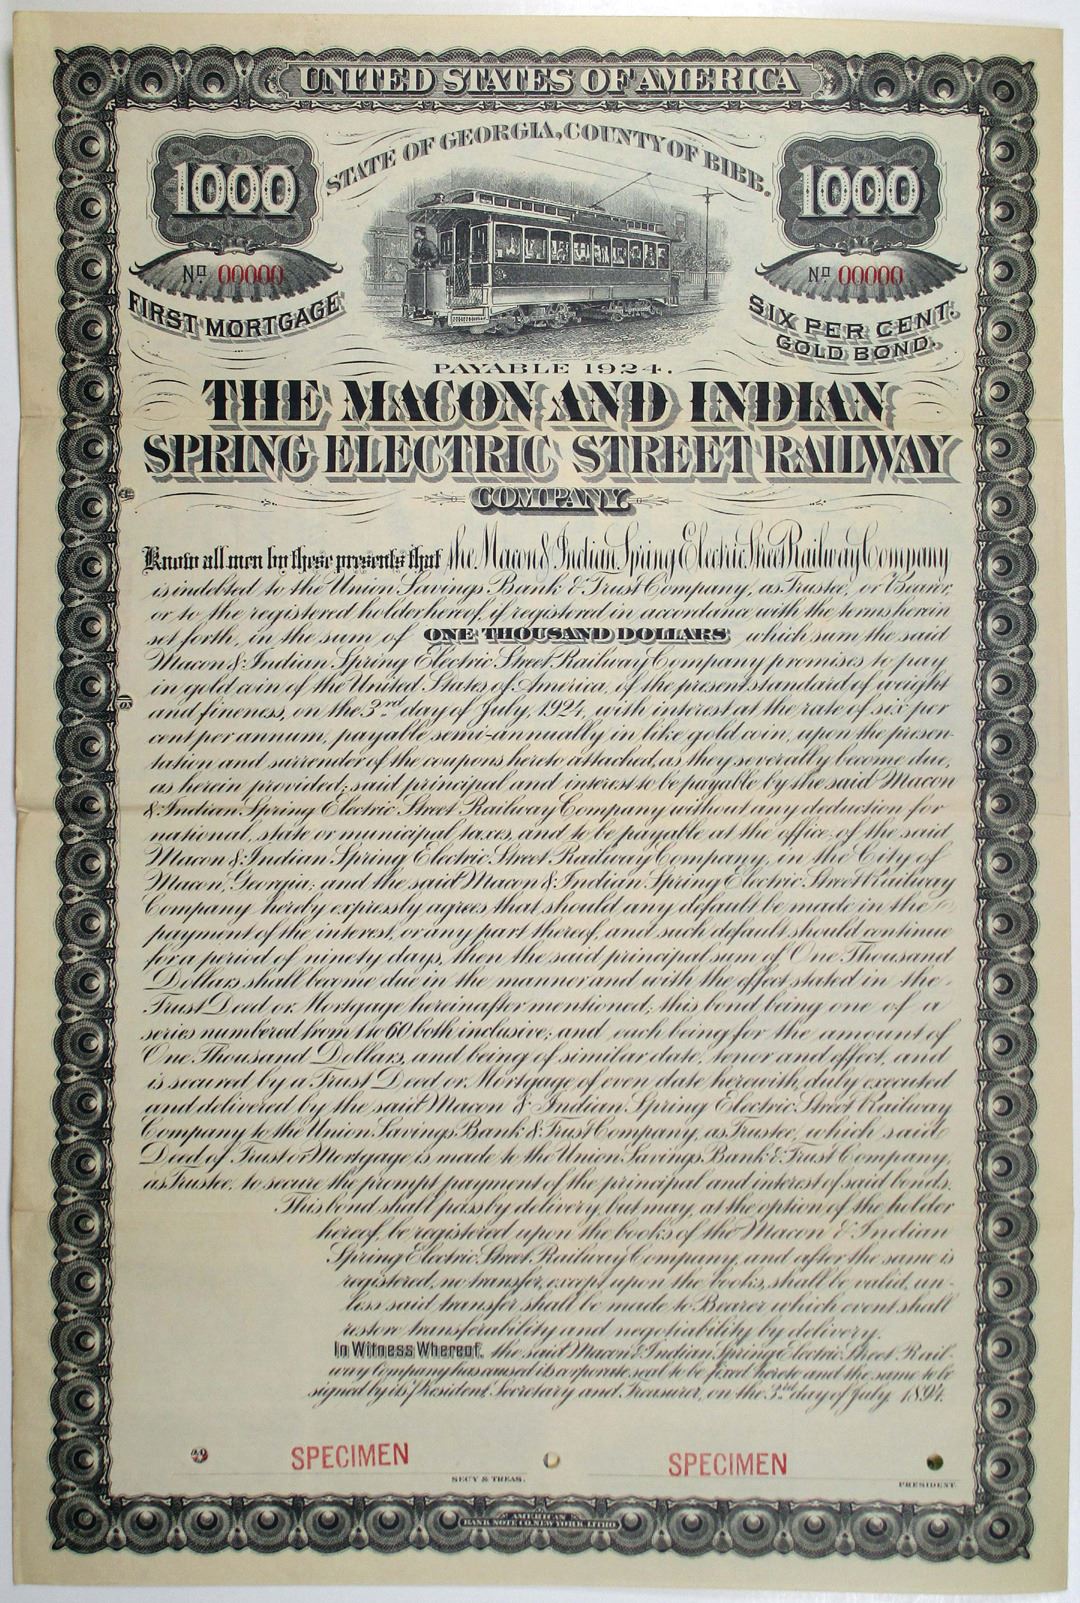 UNITED STATES OF AMERICA
STATE OF GEORGIA, COUNTY OF BIBB.
1000
1000
No 00000
No 00000
FIRST MORTGAGE
SIX PER CENT.
GOLD BOND.
PAYABLE 1924.
THE MACON AND INDIAN
SPRING ELECTRIC STREET RAILWAY
COMPANY.
Know all men by these presents that the Macon & Indian Spring Electric Street Railway Company
is indebted to the Union Savings Bank & Trust Company, as Trustee, or Bearer,
or to the registered holder hereof, if registered in accordance with the terms herein
set forth, in the sum of ONE THOUSAND DOLLARS which sum the said
Macon & Indian Spring Electric Street Railway Company promises to pay
in gold coin of the United States of America, of the present standard of weight
and fineness, on the 3rd day of July, 1924, with interest at the rate of six per
cent per annum, payable semi-annually in like gold coin, upon the presen-
tation and surrender of the coupons hereto attached, as they severally become due,
as herein provided; said principal and interest to be payable by the said Macon
& Indian Spring Electric Street Railway Company without any deduction for
national, state or municipal taxes, and to be payable at the office of the said
Macon & Indian Spring Electric Street Railway Company, in the City of
Macon, Georgia; and the said Macon & Indian Spring Electric Street Railway
Company hereby expressly agrees that should any default be made in the
payment of the interest, or any part thereof, and such default should continue
for a period of ninety days, then the said principal sum of One Thousand
Dollars shall become due in the manner and with the effect stated in the
Trust Deed or Mortgage hereinafter mentioned; this bond being one of a
series numbered from 1 to 60 both inclusive; and each being for the amount of
One Thousand Dollars, and being of similar date, tenor and effect, and
is secured by a Trust Deed or Mortgage of even date herewith, duly executed
and delivered by the said Macon & Indian Spring Electric Street Railway
Company to the Union Savings Bank & Trust Company, as Trustee, which said
Deed of Trust or Mortgage is made to the Union Savings Bank & Trust Company,
as Trustee, to secure the prompt payment of the principal and interest of said bonds.
This bond shall pass by delivery, but may, at the option of the holder
hereof, be registered upon the books of the Macon & Indian
Spring Electric Street Railway Company, and after the same is
registered, no transfer, except upon the books, shall be valid, un-
less said transfer shall be made to Bearer which event shall
restore transferability and negotiability by delivery.
In Witness Whereof, the said Macon & Indian Spring Electric Street Rail-
way Company has caused its corporate seal to be fixed hereto and the same to be
signed by its President, Secretary and Treasurer, on the 3rd day of July 1894.
SPECIMEN
SPECIMEN
SECY & TREAS.
PRESIDENT
AMERICAN
BANK NOTE CO. NEW YORK, LITHO.